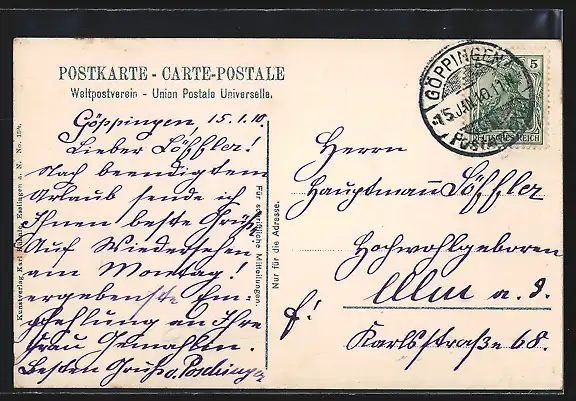 POSTKARTE - CARTE-POSTALE
Weltpostverein - Union Postale Universelle.
Göppingen 15.1.10.
Lieber Löffler!
Nach beendigtem
Urlaub sende ich
Ihnen beste Grüße
Auf Wiedersehen
am Montag!
ergebenste Em-
pfehlung an Ihre
Frau Gemahlin.
Besten Gruß v. Poschinger
Kunstverlag Karl Esslingen a. N. No. 159.
Für schriftliche Mitteilungen.
Nur für die Adresse.
GÖPPINGEN
15.JAN.10.
5
DEUTSCHES REICH
Herrn
Hauptmann Löffler
Hochwohlgeboren
Ulm a. d.
f!
Karlsstraße 68.